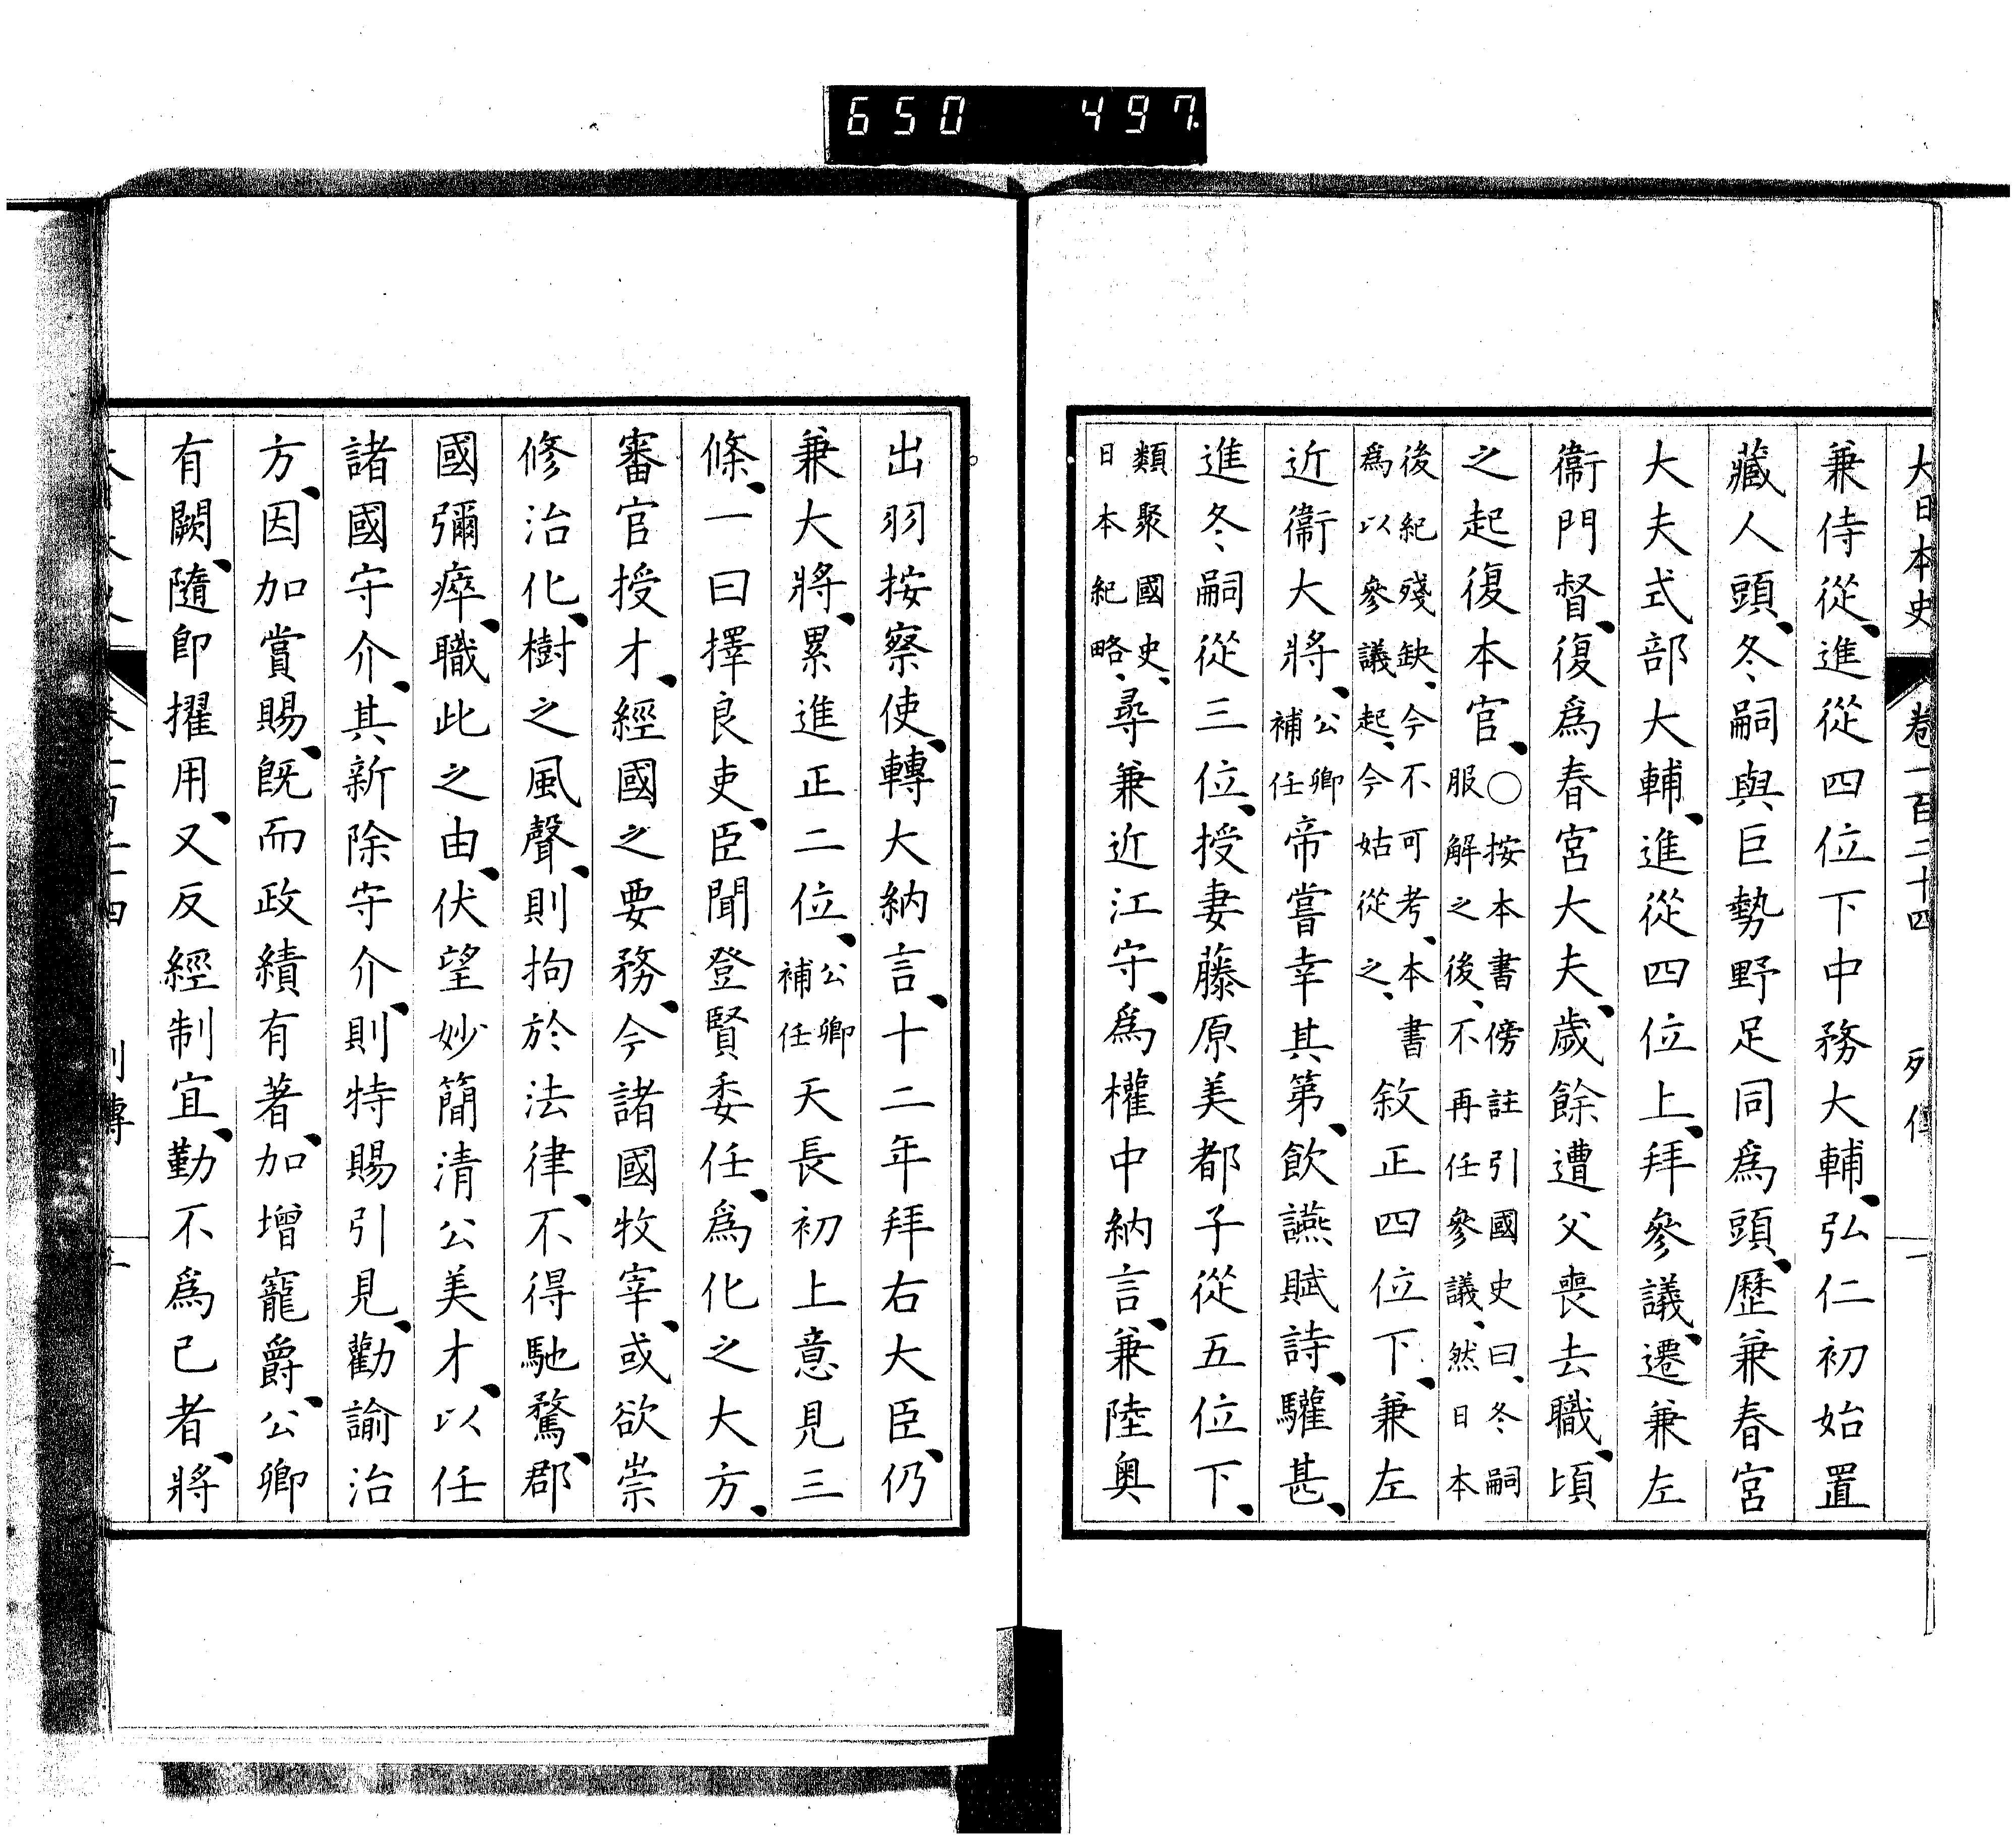 650 497
大日本史 卷一百二十四 列傳
兼侍從、進從四位下中務大輔、弘仁初始置
藏人頭、冬嗣與巨勢野足同爲頭、歷兼春宮
大夫式部大輔、進從四位上、拜參議、遷兼左
衞門督、復爲春宮大夫、歲餘遭父喪去職、頃
之起復本官、○按本書傍註引國史曰、冬嗣
服解之後、不再任參議、然日本
後紀殘缺、今不可考、本書
爲以參議起、今姑從之、敘正四位下、兼左
近衞大將、公卿補任帝嘗幸其第、飮讌賦詩、驩甚、
進冬嗣從三位、授妻藤原美都子從五位下、
類聚國史、日本紀略、尋兼近江守、爲權中納言、兼陸奥
出羽按察使、轉大納言、十二年拜右大臣、仍
兼大將、累進正二位、公卿補任天長初上意見三
條、一曰擇良吏、臣聞登賢委任、爲化之大方、
審官授才、經國之要務、今諸國牧宰、或欲崇
修治化、樹之風聲、則拘於法律、不得馳騖、郡
國彌瘁、職此之由、伏望妙簡清公美才、以任
諸國守介、其新除守介、則特賜引見、勸諭治
方、因加賞賜、旣而政績有著、加增寵爵、公卿
有闕、隨卽擢用、又反經制宜、勤不爲己者、將